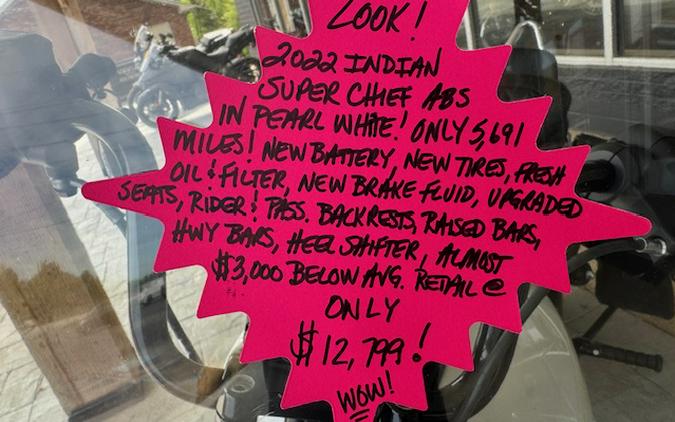 LOOK!
2022 INDIAN
SUPER CHIEF ABS
IN PEARL WHITE! ONLY 5,691
MILES! NEW BATTERY, NEW TIRES, FRESH
OIL & FILTER, NEW BRAKE FLUID, UPGRADED
SEATS, RIDER & PASS. BACKRESTS, RAISED BARS,
HWY BARS, HEEL SHIFTER, ALMOST
$3,000 BELOW AVG. RETAIL @
ONLY
$12,799!
WOW!